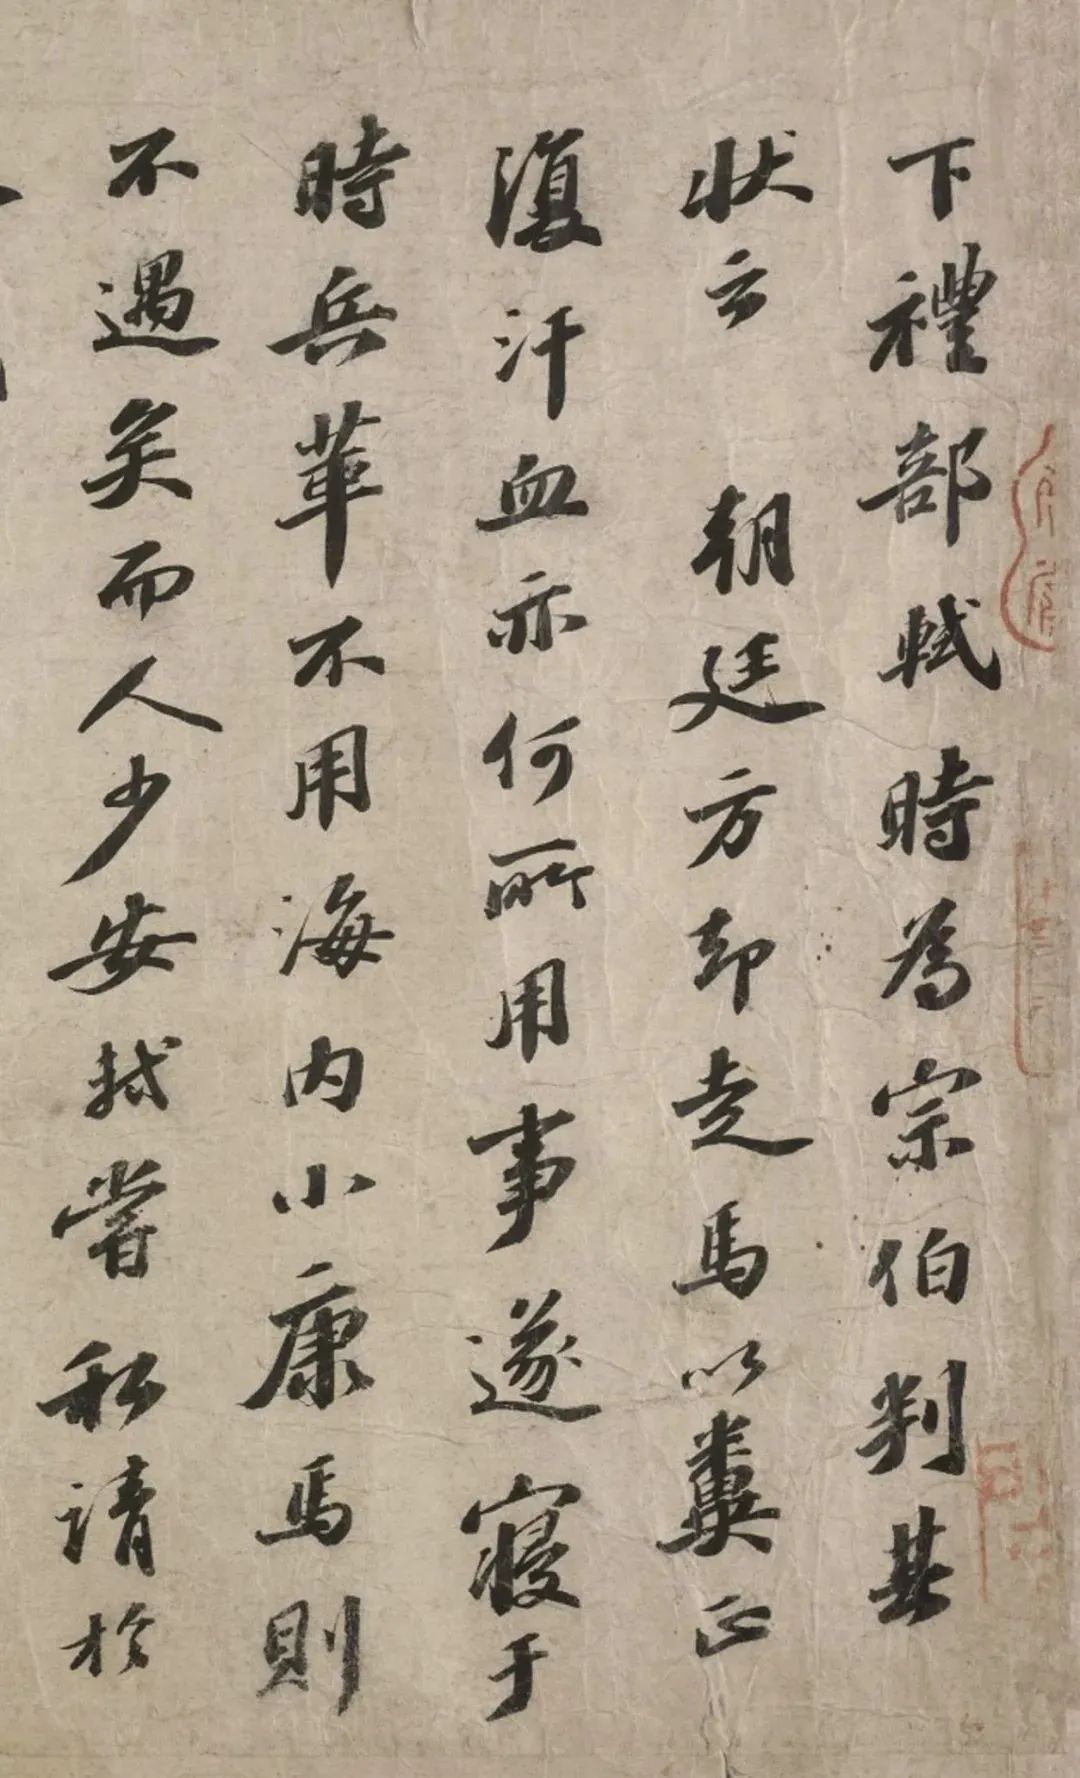 下禮部軾時為宗伯判其
狀云 朝廷方却走馬以糞正
復汗血亦何所用事遂寢于
時兵革不用海內小康馬則
不遇矣而人少安軾嘗私請於